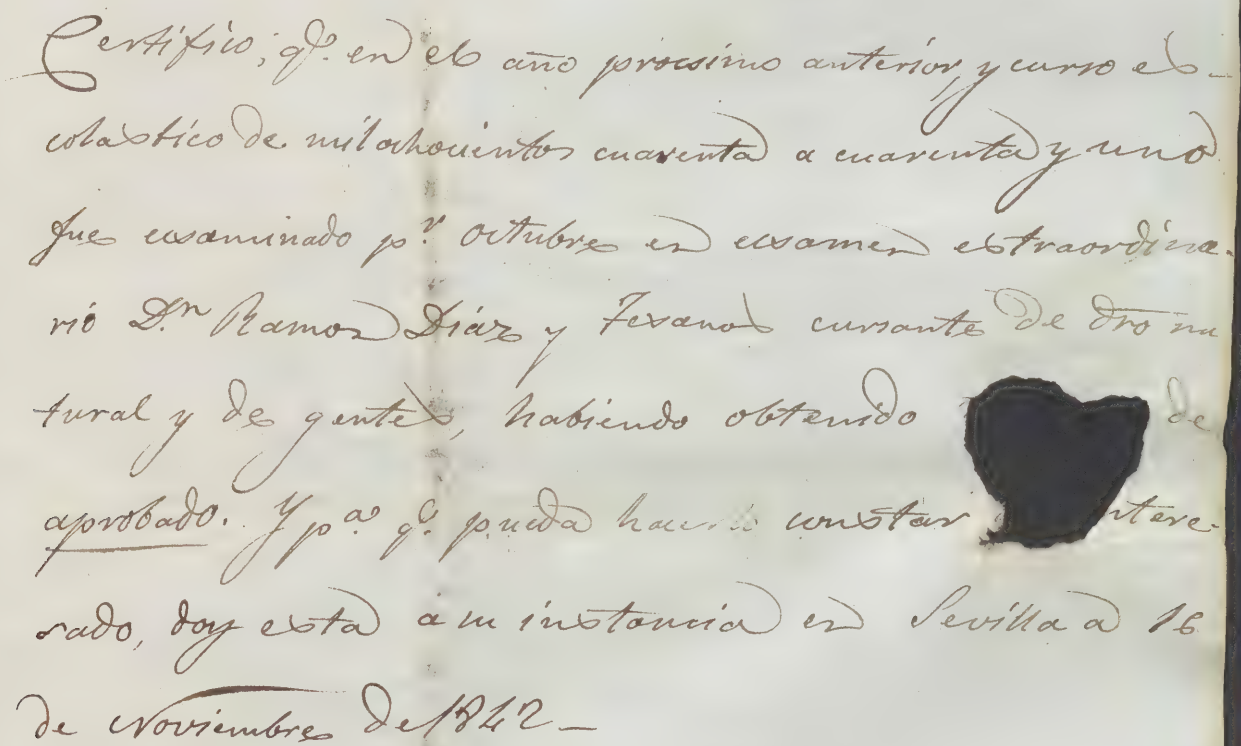 Certifico; qe. en el año procsimo anterior, y curso es-
colastico de mil ochocientos cuarenta a cuarenta y uno
fue ecsaminado pr. Octubre en ecsamen estraordina-
rio Dn. Ramon Diáz y Tesanos cursante de dro na
tural y de gentes, habiendo obtenido de
aprobado. Y pa. qe. pueda hacerlo constar ntere-
sado, doy esta á su instancia en Sevilla a 16
de Noviembre de 1842-